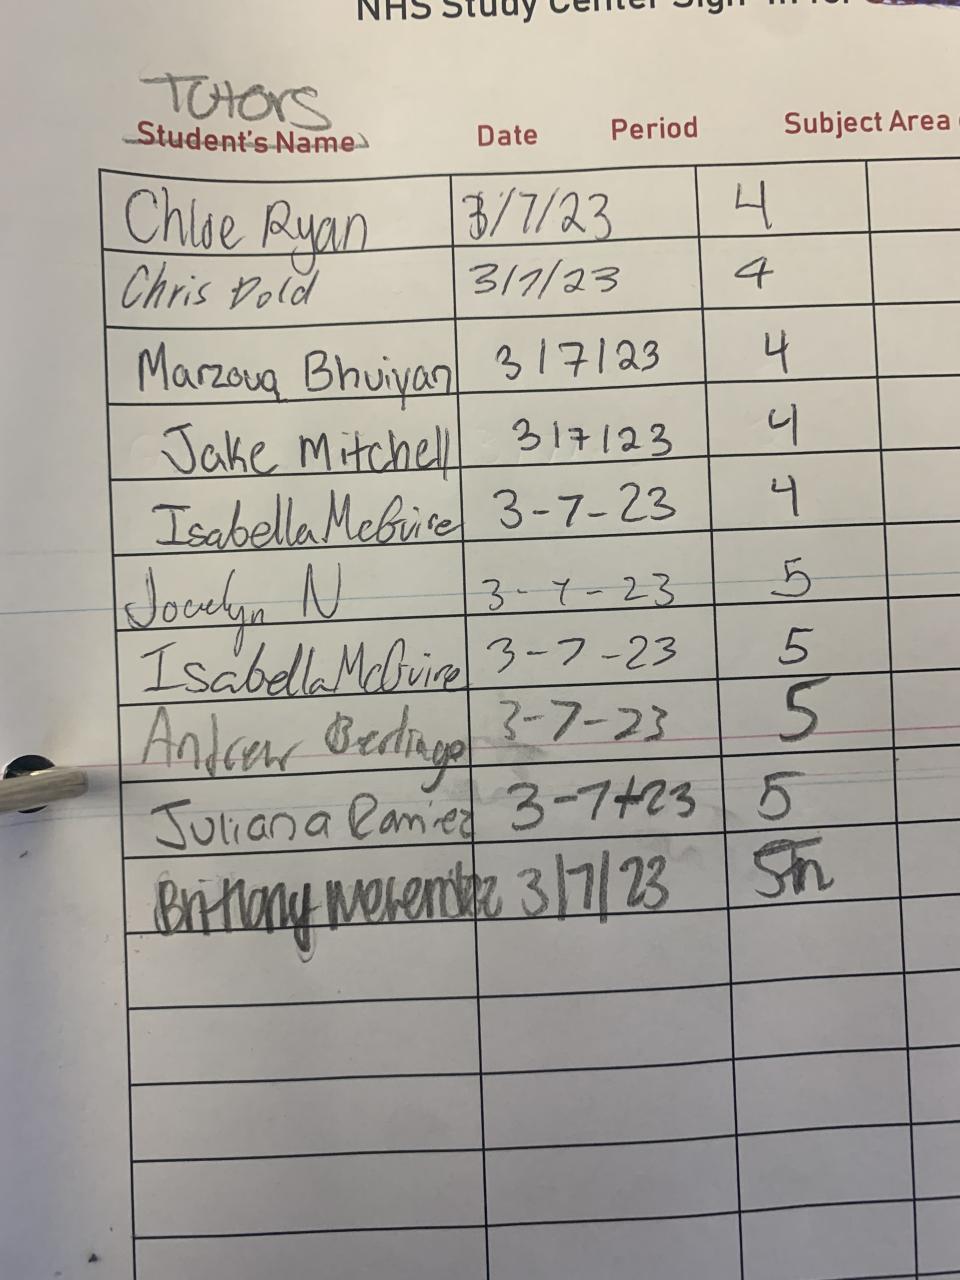 NHS Study Center Sign-In for
TUTORS
Student's Name Date Period Subject Area
Chloe Ryan 3/7/23 4
Chris Dold 3/7/23 4
Marzouq Bhuiyan 3/7/23 4
Jake Mitchell 3/7/23 4
Isabella McGuire 3-7-23 4
Jocelyn N 3-7-23 5
Isabella McGuire 3-7-23 5
Andrew 3-7-23 5
Juliana Ramirez 3-7-23 5
Brittany 3/7/23 5th